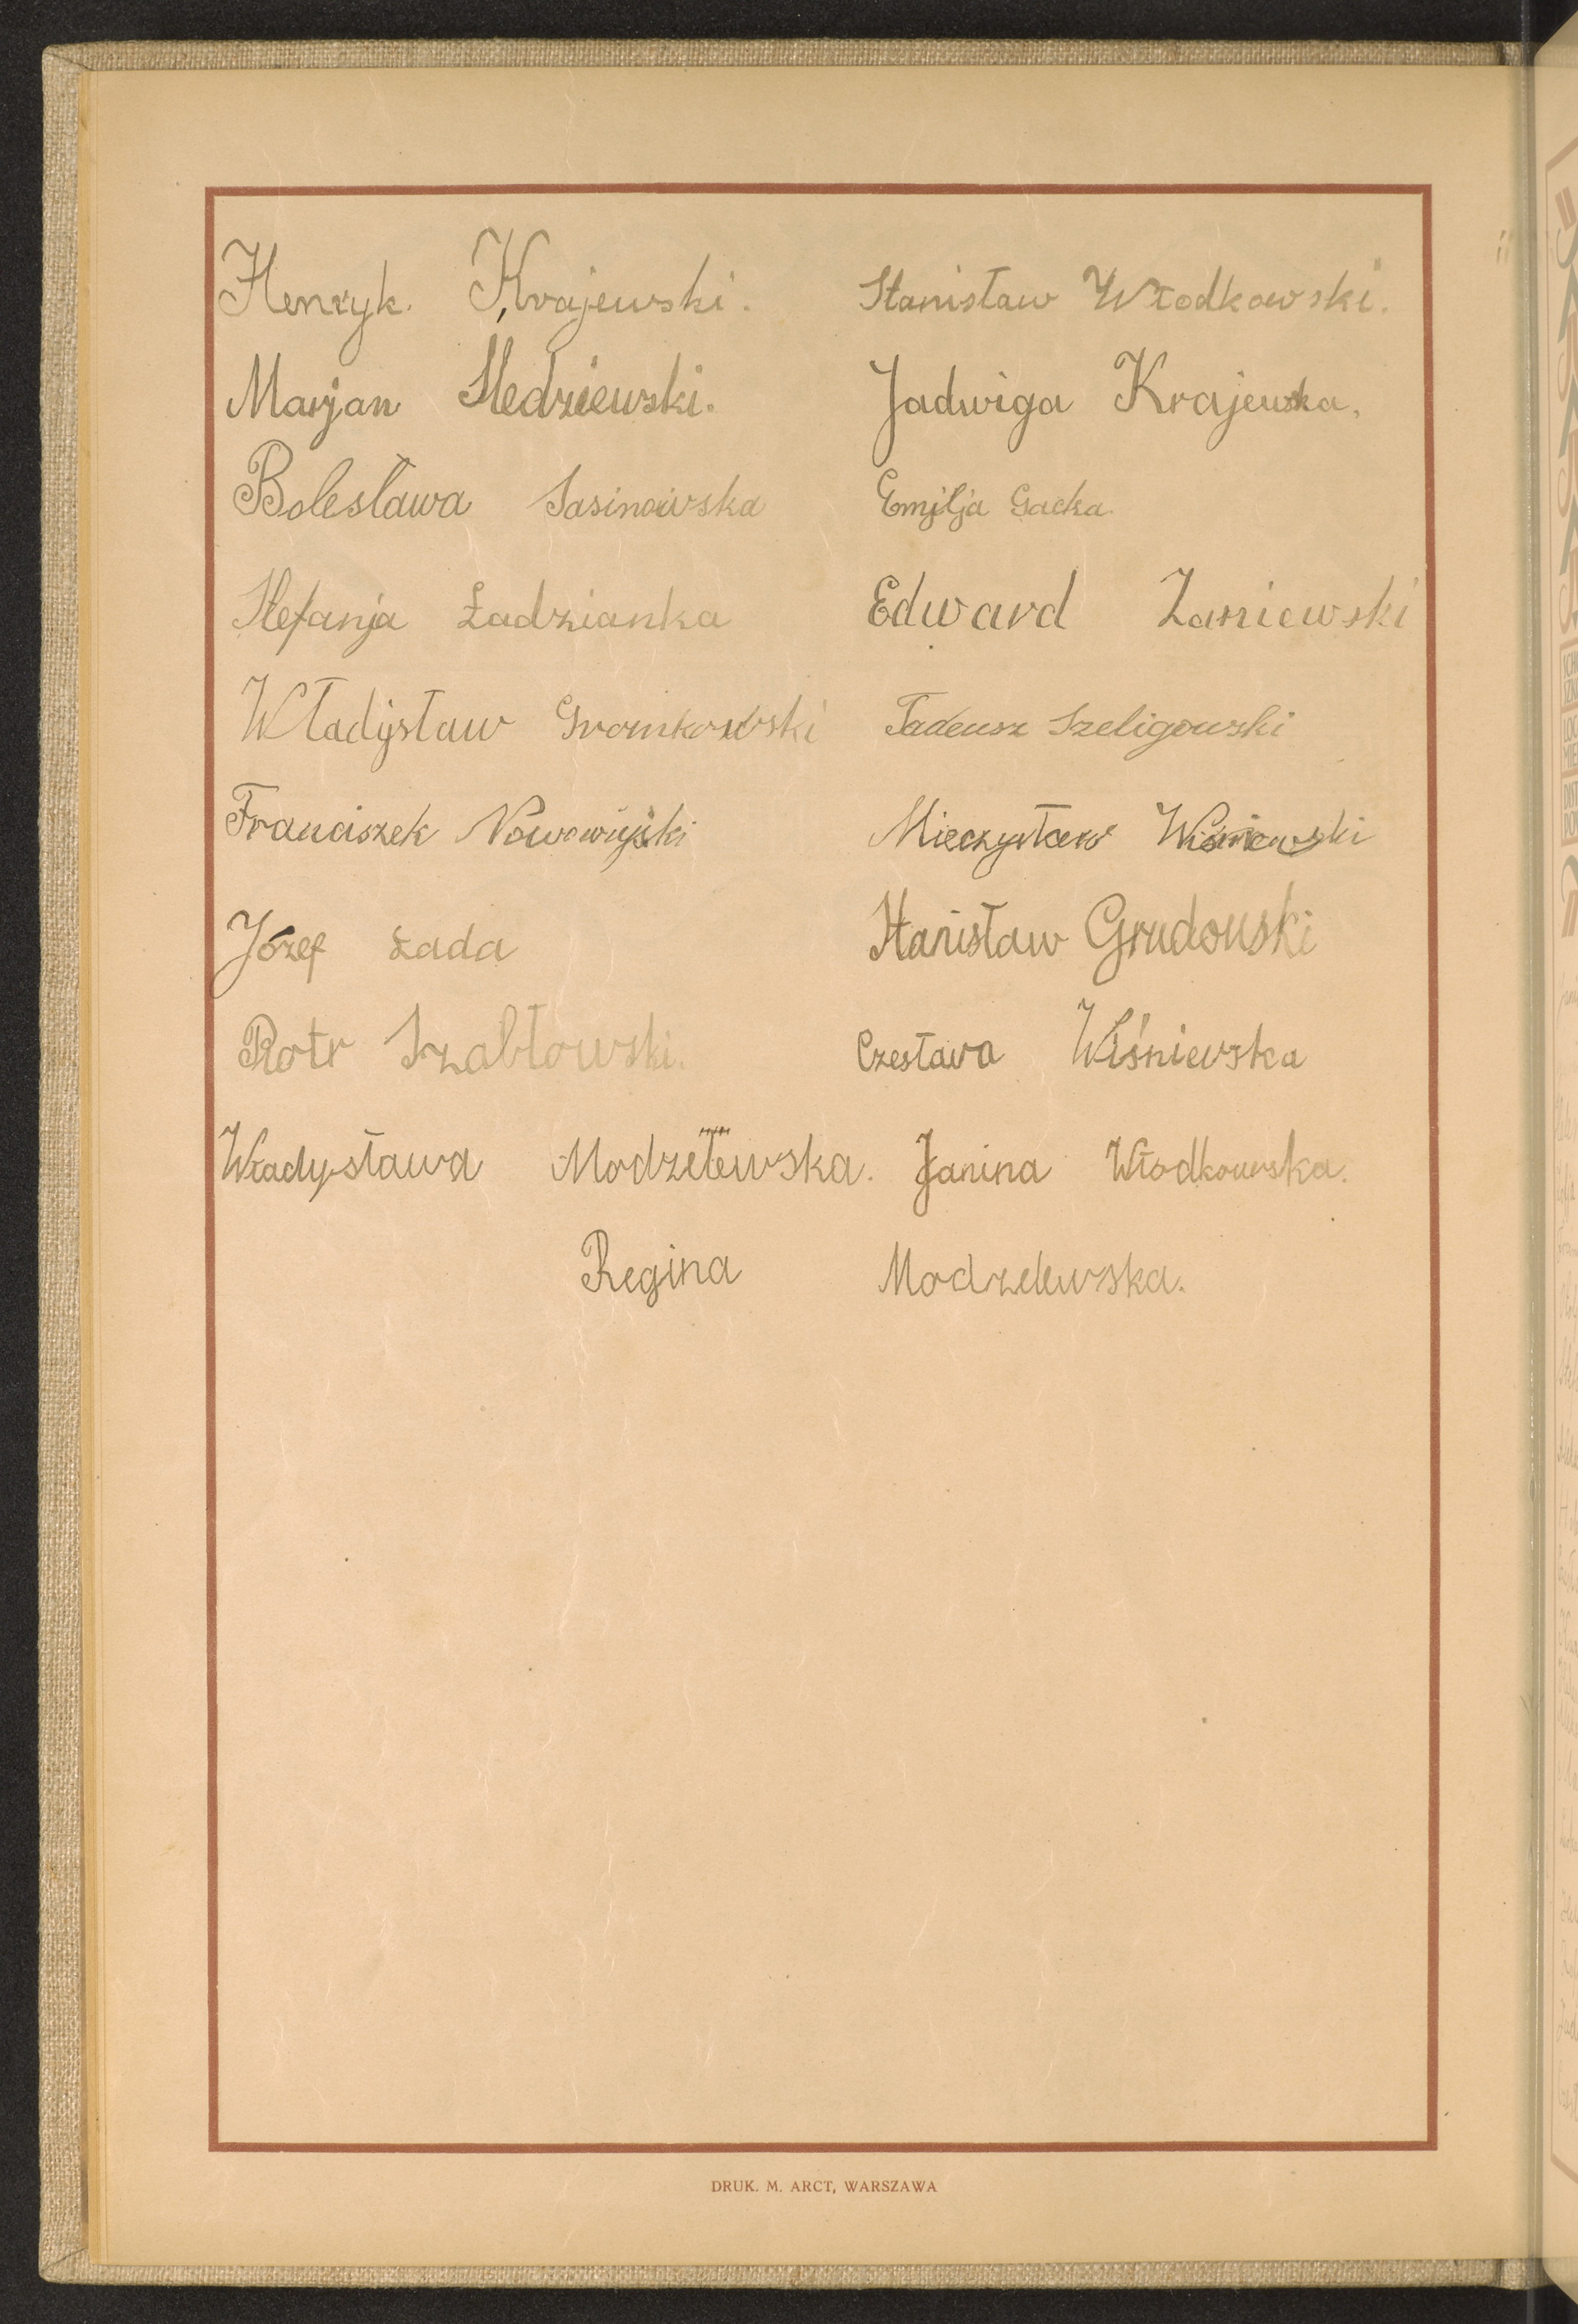 Henryk. Krajewski. Stanisław Włodkowski.
Marjan Sledziewski. Jadwiga Krajewska.
Bolesława Sasinowska Emilja Gacka.
Stefanja Ładzianka Edward Zaniewski
Władysław Gromkowski Tadeusz Szeligowski
Franciszek Nowowiejski Mieczysław Wiśniewski
Józef Łada Stanisław Grudowski
Piotr Szabłowski. Czesława Wiśniewska
Władysława Modzelewska. Janina Włodkowska.
Regina Modzelewska.
DRUK. M. ARCT, WARSZAWA